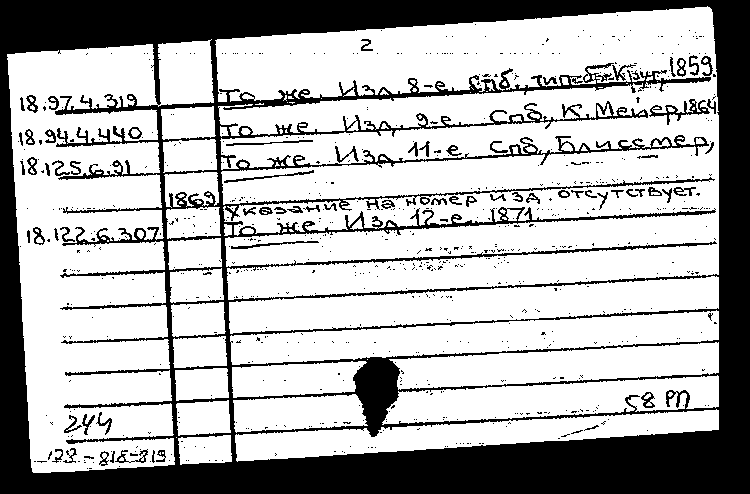 2
18.97.4.319 То же. Изд. 8-е. Спб., тип. Круг, 1859.
18.94.4.440 То же. Изд. 9-е. Спб., К. Мейер, 1864
18.125.6.91 То же. Изд. 11-е. Спб., Блиссмер,
1869. Указание на номер изд. отсутствует.
18.122.6.307 То же. Изд. 12-е. 1871.
244
58 РП
128-818-819